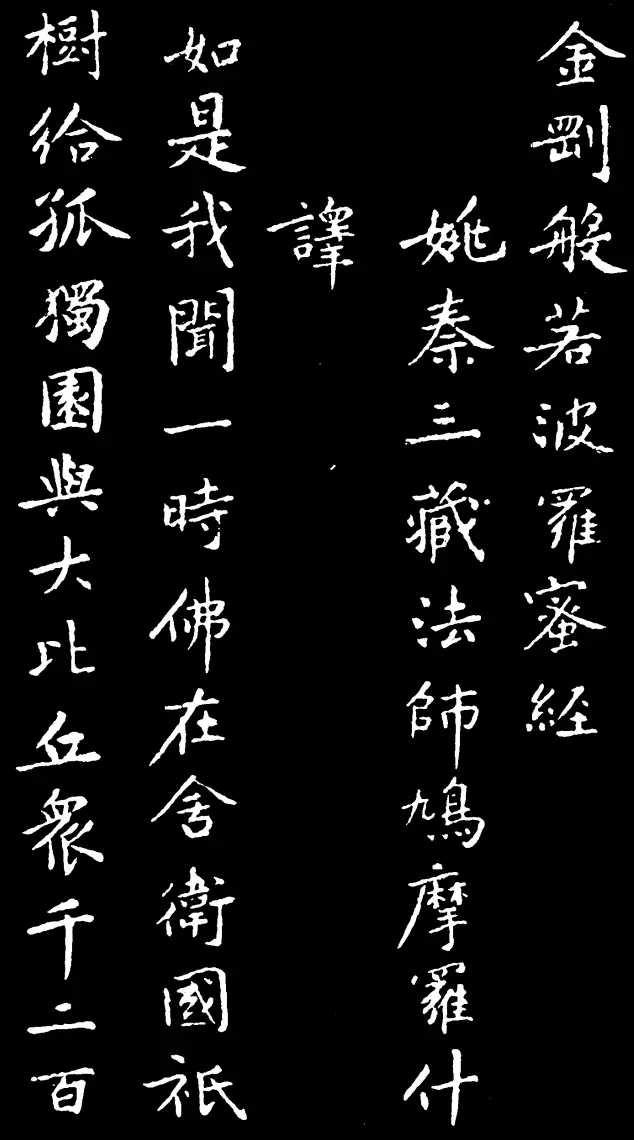 金剛般若波羅蜜経
姚秦三藏法師鳩摩羅什
譯
如是我聞一時佛在舎衛國祇
樹給孤獨園與大比丘衆千二百